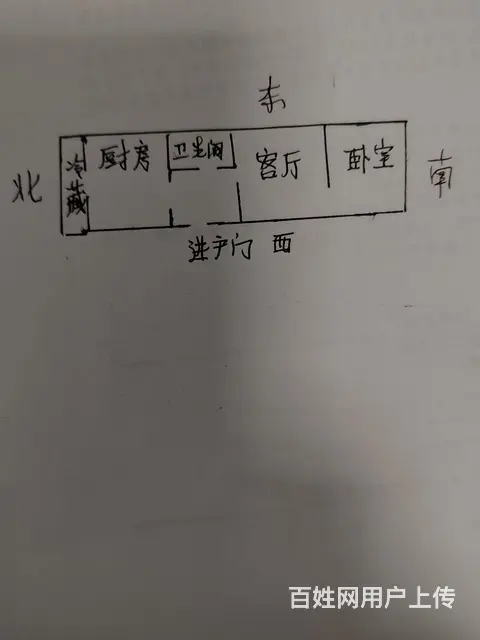 东
北
冷藏
厨房
卫生间
客厅
卧室
南
进户门 西
百姓网用户上传